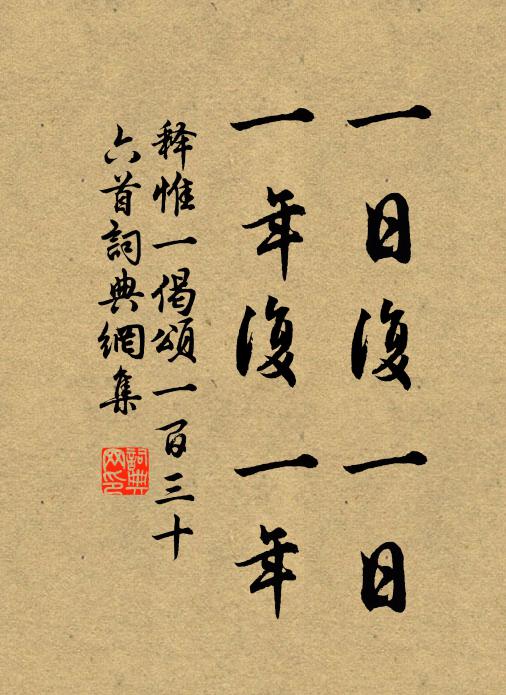 一日復一日
一年復一年
释惟一偈頌一百三十
六首詞典網集
詞典
网印